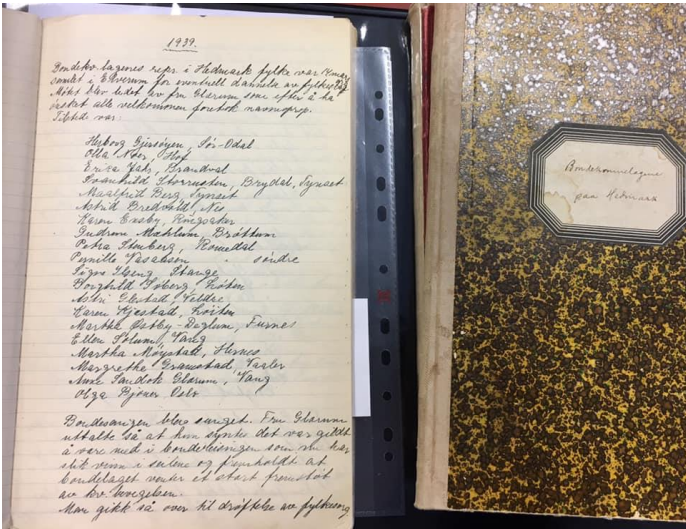 1939.
Bondekv. lagenes repr. i Hedmark fylke var 14 mars
samlet i Elverum for eventuell dannelse av fylkeslag
Møtet blev ledet av fru Glærum som efter å ha
ønsket alle velkommen foretok navneopprop.
Tilstede var:
Herborg Gjersøyen, Sør-Odal
Olla Noer, Hof
Erica Jahr, Brandval
Svanhild Storrusten, Brydal, Tynset
Maalfrid Berg, Tynset
Astrid Bredvold, Nes
Karen Exsby, Ringsaker
Gudrun Mæhlum, Brøttum
Petra Stenberg, Romedal
Pernille Vasaasen - søndre
Signe Ilseng Stange
Borghild Soberg Løten
Astri Gjestad, Veldre
Karen Kjestad, Løiten
Martha Østby-Deglum, Furnes
Ellen Solum, Vang
Martha Møystad, Hernes
Margrethe Gramstad, Vaaler
Anne Sandok Glærum, Vang
Olga Bjoner Oslo
Bondesangen blev sunget. Fru Glærum
uttalte så at hun syntes det var gildt
å være med i bondereisningen som nu har
slik vinn i seilene og fremholdt at
bondelaget venter et stort fremstøt
av kv. bevegelsen.
Man gikk så over til drøftelse av fylkesorg
Bondekvinnelagene
paa Hedmark